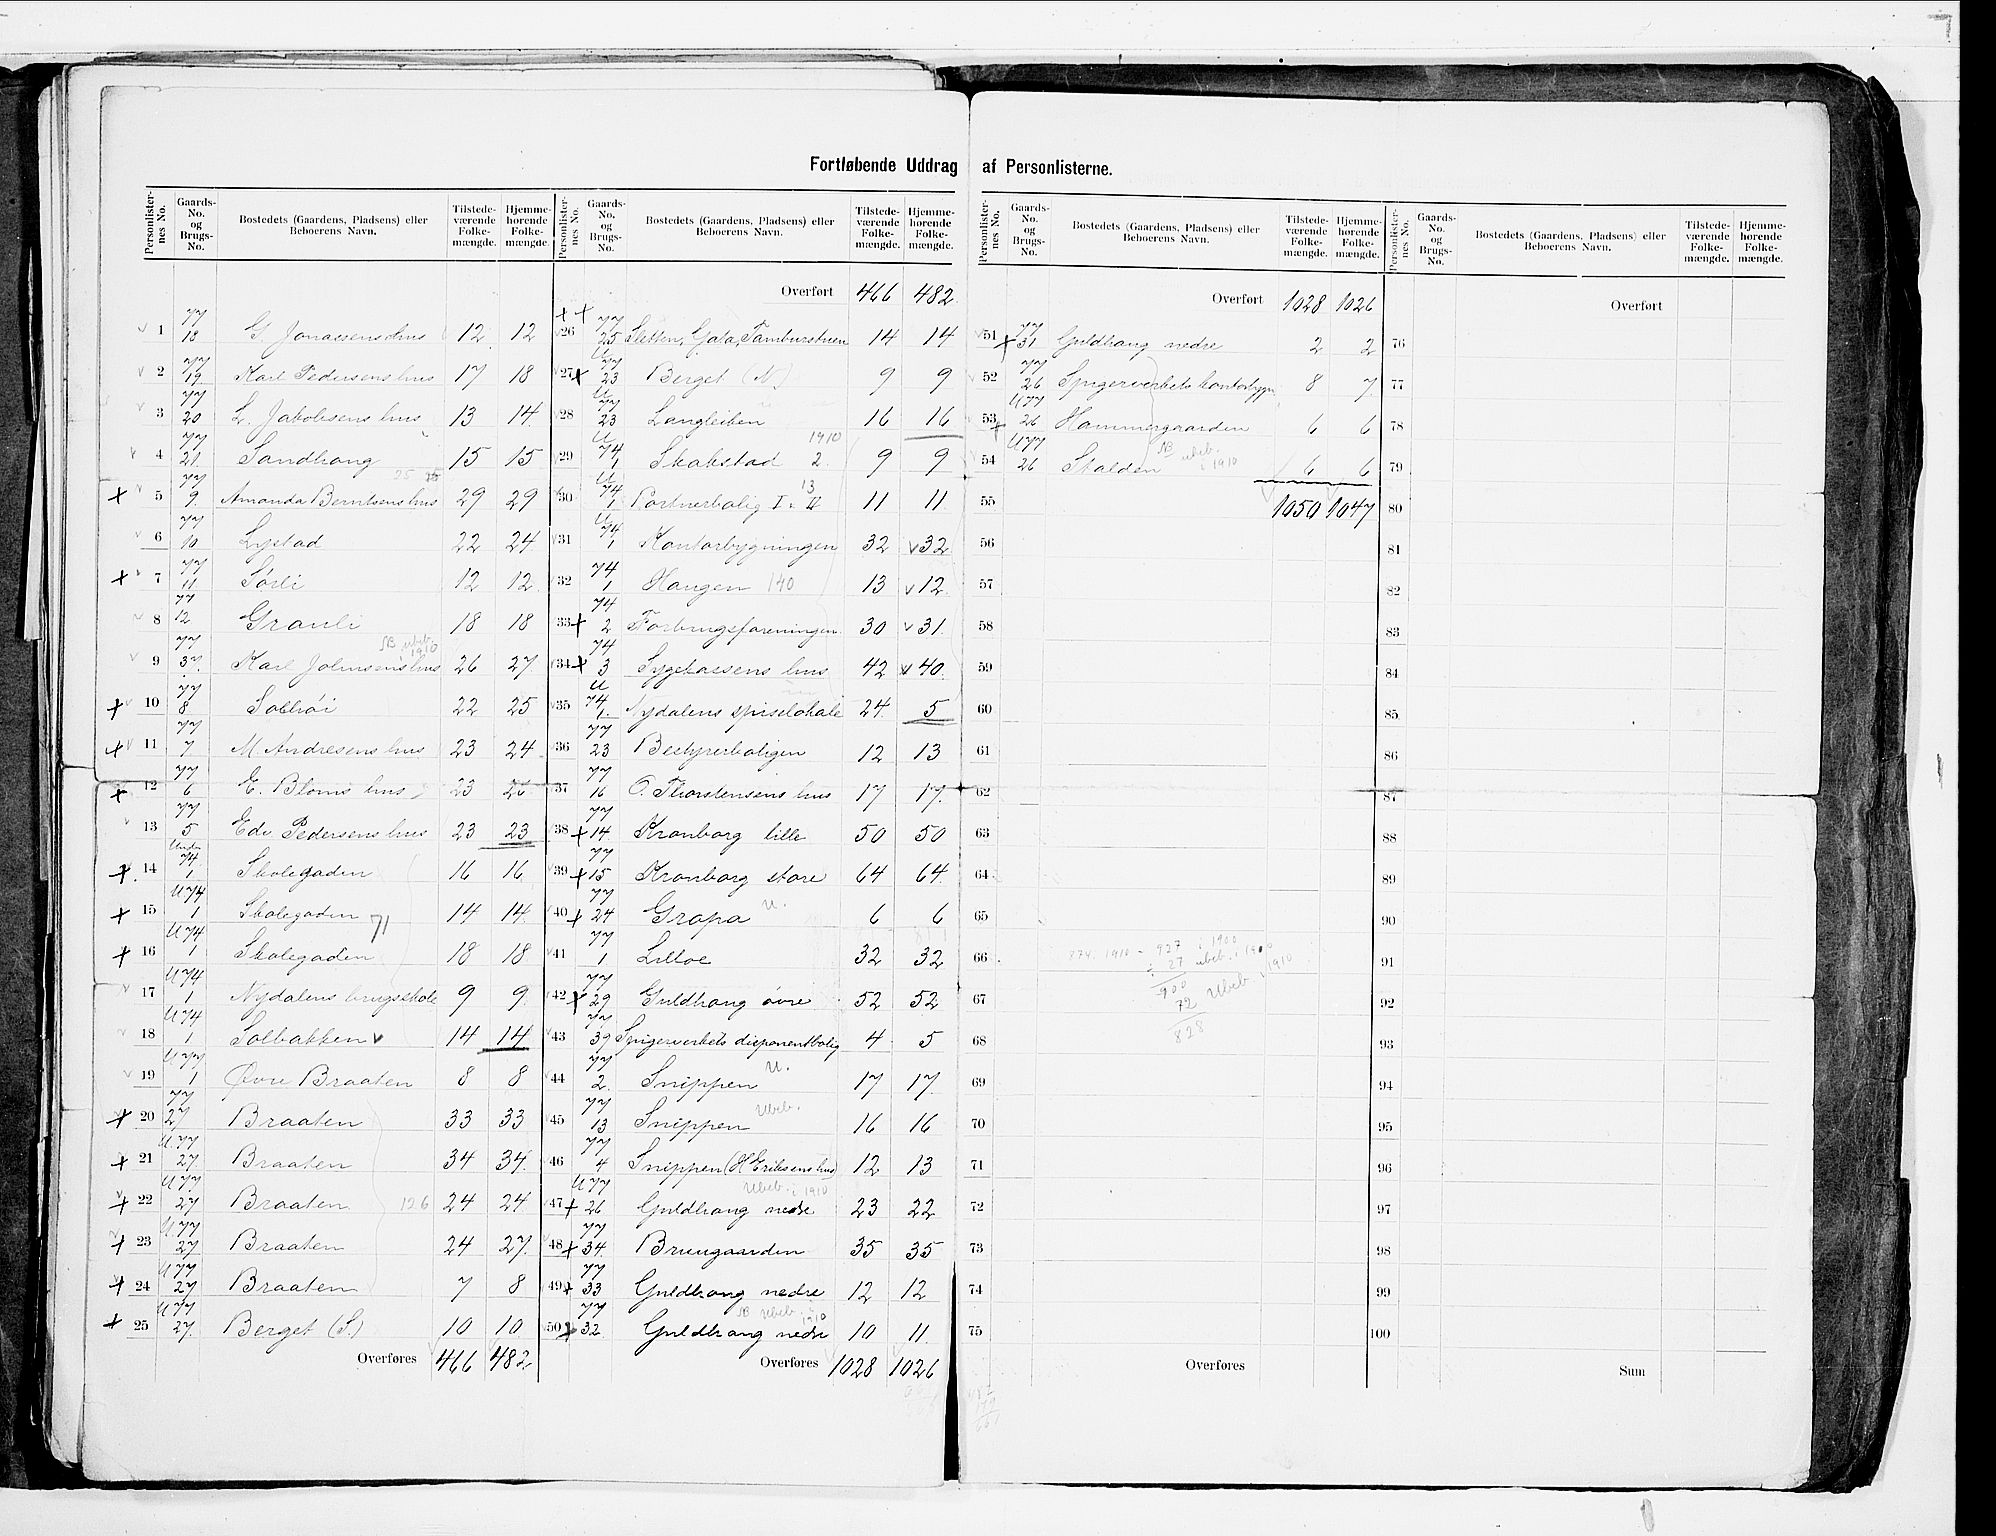 Fortløbende Uddrag af Personlisterne.
Personlisternes No. Gaards-No. og Brugs-No. Bostedets (Gaardens, Pladsens) eller Beboerens Navn. Tilstedeværende Folkemængde. Hjemmehørende Folkemængde.
1 77/18 G. Jonassens hus 12 12
2 77/19 Karl Pedersens hus 17 18
3 77/20 L. Jakobsens hus 13 14
4 77/21 Sandhaug 15 15
25 25
5 77/9 Amanda Berntsens hus 29 29
6 77/10 Lystad 22 24
7 77/11 Sørli 12 12
8 77/12 Granli 18 18
NB ubeb. 1910
9 77/37 Karl Johnsens hus 26 27
10 77/8 Solhøi 22 25
11 77/7 M. Andresens hus 23 24
12 77/6 E. Bloms hus 23
13 77/5 Edv. Pedersens hus 23 23
14 Under 74/1 Skolegaden 16 16
15 U 74/1 Skolegaden 71 14 14
16 U 74/1 Skolegaden 18 18
17 U 74/1 Nydalens brugsskole 9 9
18 U 74/1 Solbakken v 14 14
19 U 77/1 Øvre Braaten 8 8
20 77/27 Braaten 33 33
21 U 77/27 Braaten 34 34
22 U 77/27 Braaten 126 24 24
23 U 77/27 Braaten 24 27
24 U 77/27 Braaten 7 8
25 U 77/27 Berget (S.) 10 10
Overføres 466 482
Personlisternes No. Gaards-No. og Brugs-No. Bostedets (Gaardens, Pladsens) eller Beboerens Navn. Tilstedeværende Folkemængde. Hjemmehørende Folkemængde.
Overført 466 482
26 77/25 Sletten, Gata, Tamburstuen 14 14
27 U 77/23 Berget (N.) 9 9
28 U 77/23 Langleiken 16 16
1910
29 U 74/1 Skabstad 2 9 9
13
30 U 74/1 Portnerbolig I & II 11 11
31 U 74/1 Kontorbygningen 32 32
32 74/1 Haugen 140 13 12
33 74/2 Forbrugsforeningen 30 31
34 74/3 Sygekassens hus 42 40
35 U 74/1 Nydalens spiselokale 24 5
36 77/23 Bestyrerboligen 12 13
37 77/16 O. Thorstensens hus 17 17
38 77/14 Kronborg lille 50 50
39 77/15 Kronborg store 64 64
40 77/24 Gropa u. 6 6
41 77/1 Lilloe 32 32
42 77/29 Guldhaug øvre 52 52
43 77/39 Spigerverkets disponentbolig 4 5
44 77/2 Snippen u. 17 17
45 77/13 Snippen Ubeb. 16 16
46 77/4 Snippen (H Eriksens hus) 12 13
Ubeb. i 1910
47 U 77/26 Guldhaug nedre 23 22
48 77/34 Bruugaarden 35 35
49 77/33 Guldhaug nedre 12 12
NB Ubeb. i 1910
50 77/32 Guldhaug nedre 10 11
Overføres 1028 1026
Personlisternes No. Gaards-No. og Brugs-No. Bostedets (Gaardens, Pladsens) eller Beboerens Navn. Tilstedeværende Folkemængde. Hjemmehørende Folkemængde.
Overført 1028 1026
51 77/31 Guldhaug nedre 2 2
52 77/26 Spigerverkets kontorbygn 8 7
53 U 77/26 Hammergaarden 6 6
54 U 77/26 Stalden NB ubeb. i 1910 6 6
55 1050 1047
56
57
58
59
60
61
62
63
64
65
66 874. 1910 - 927 i 1900
÷ 27 ubeb. i 1900
67 900
72 Ubeb. i 1910
68 828
69
70
71
72
73
74
75
Overføres
Personlisternes No. Gaards-No. og Brugs-No. Bostedets (Gaardens, Pladsens) eller Beboerens Navn. Tilstedeværende Folkemængde. Hjemmehørende Folkemængde.
Overført
76
77
78
79
80
81
82
83
84
85
86
87
88
89
90
91
92
93
94
95
96
97
98
99
100
Sum